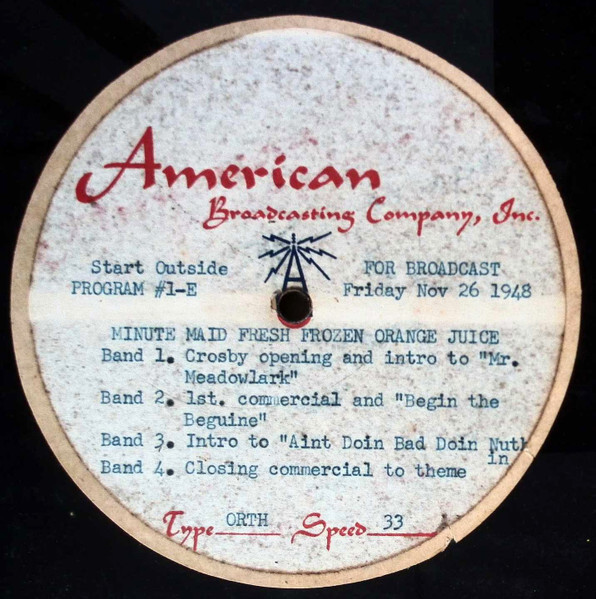 American
Broadcasting Company, Inc.
Start Outside FOR BROADCAST
PROGRAM #1-E Friday Nov 26 1948
MINUTE MAID FRESH FROZEN ORANGE JUICE
Band 1. Crosby opening and intro to "Mr.
Meadowlark"
Band 2. 1st. commercial and "Begin the
Beguine"
Band 3. Intro to "Aint Doin Bad Doin Nuth
in
Band 4. Closing commercial to theme
Type ORTH Speed 33